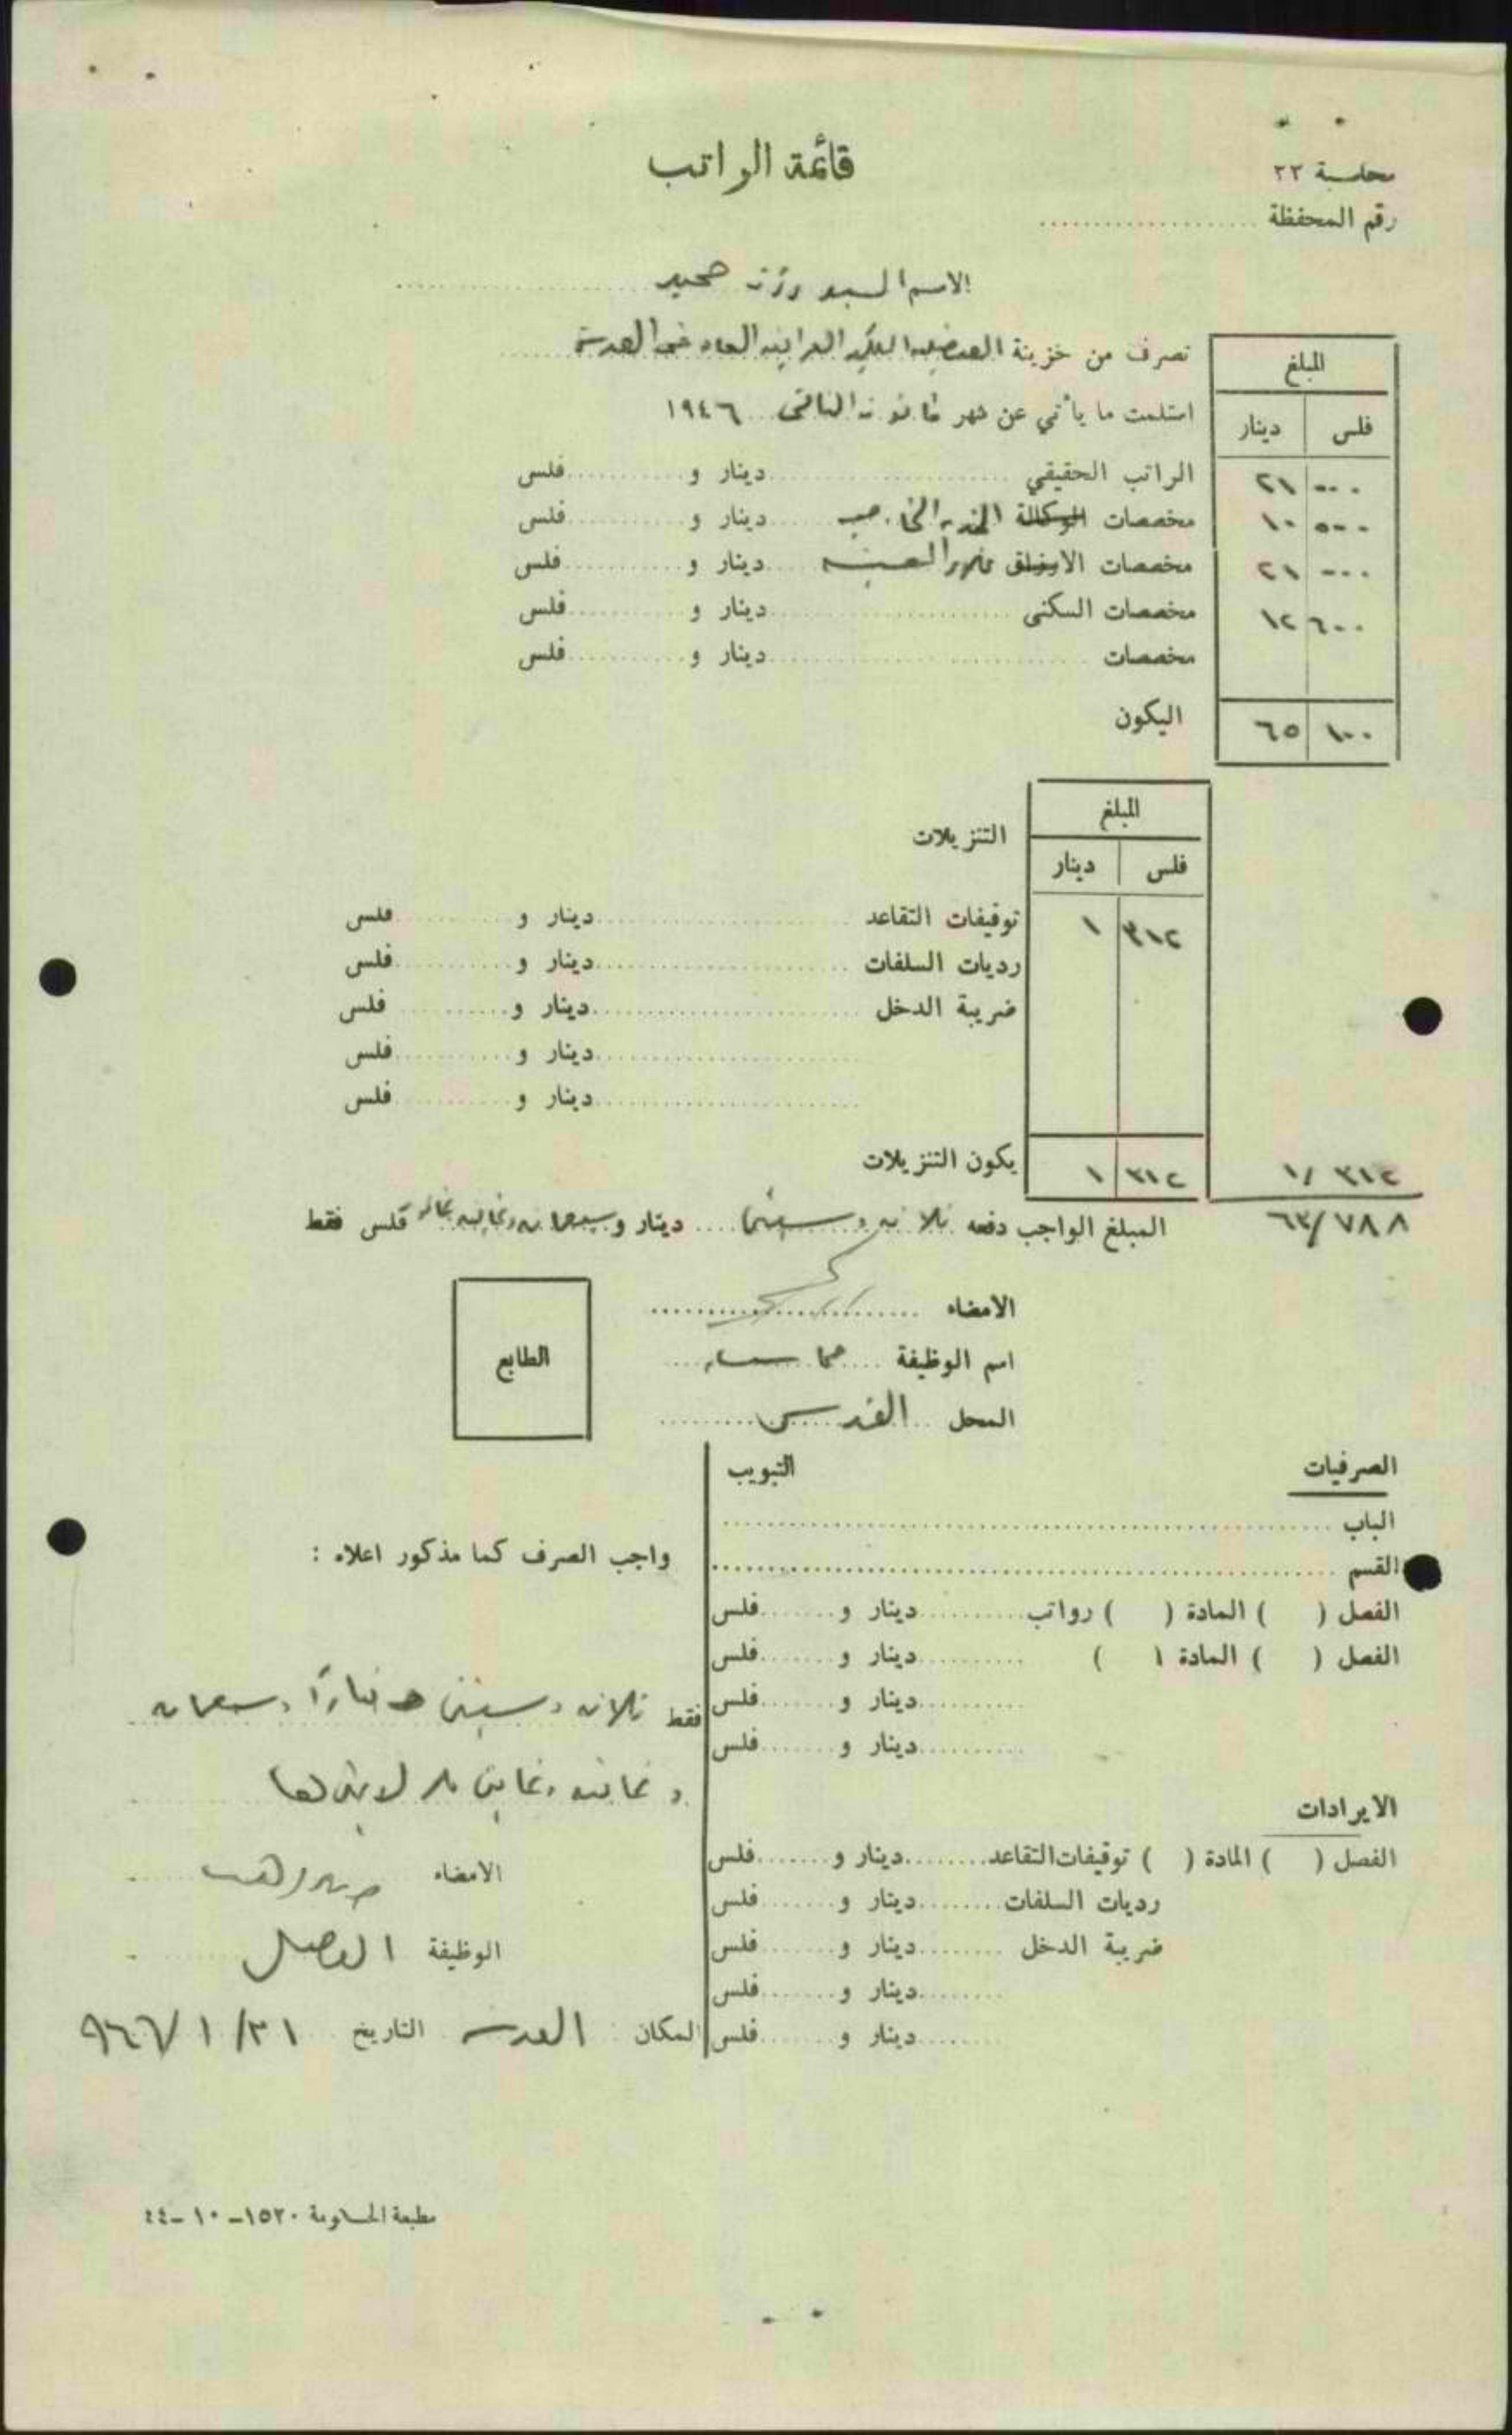 قائمة الراتب
محاسبة ٢٣
رقم المحفظة
الاسم السيد
تصرف من خزينة القنصلية الملكية العراقية العامة في القدس
استلمت ما يأتي عن شهر كانون الثاني ١٩٤٦
المبلغ
فلس دينار
الراتب الحقيقي دينار و فلس ٠٠٠ ٢١
مخصصات الوكالة الخدمة الخارجية دينار و فلس ٥٠٠ ١٠
مخصصات الارزاق غلاء المعيشة دينار و فلس ٠٠٠ ٢١
مخصصات السكنى دينار و فلس ٦٠٠ ١٢
مخصصات دينار و فلس
اليكون ١٠٠ ٦٥
المبلغ
التنزيلات
فلس دينار
توقيفات التقاعد دينار و فلس ٣١٢ ١
رديات السلفات دينار و فلس
ضريبة الدخل دينار و فلس
دينار و فلس
دينار و فلس
يكون التنزيلات ٣١٢ ١
١/٣١٢
٦٣/٧٨٨
المبلغ الواجب دفعه ثلاثة وستين دينار و سبعمائة وثمانية وثمانين فلس فقط
الامضاء
اسم الوظيفة
المحل القدس
الطابع
الصرفيات
التبويب
الباب
القسم
الفصل ( ) المادة ( ) رواتب دينار و فلس
الفصل ( ) المادة ( ) دينار و فلس
دينار و فلس
دينار و فلس
الايرادات
الفصل ( ) المادة ( ) توقيفات التقاعد دينار و فلس
رديات السلفات دينار و فلس
ضريبة الدخل دينار و فلس
دينار و فلس
دينار و فلس
واجب الصرف كما مذكور اعلاه :
فقط ثلاثة وستين دينارًا وسبعمائة
وثمانية وثمانين فلس لا غيرها
الامضاء
الوظيفة القنصل
المكان القدس التاريخ ٣١/١/٩٤٦
مطبعة الحكومة ١٥٢٠-١٠-٤٤